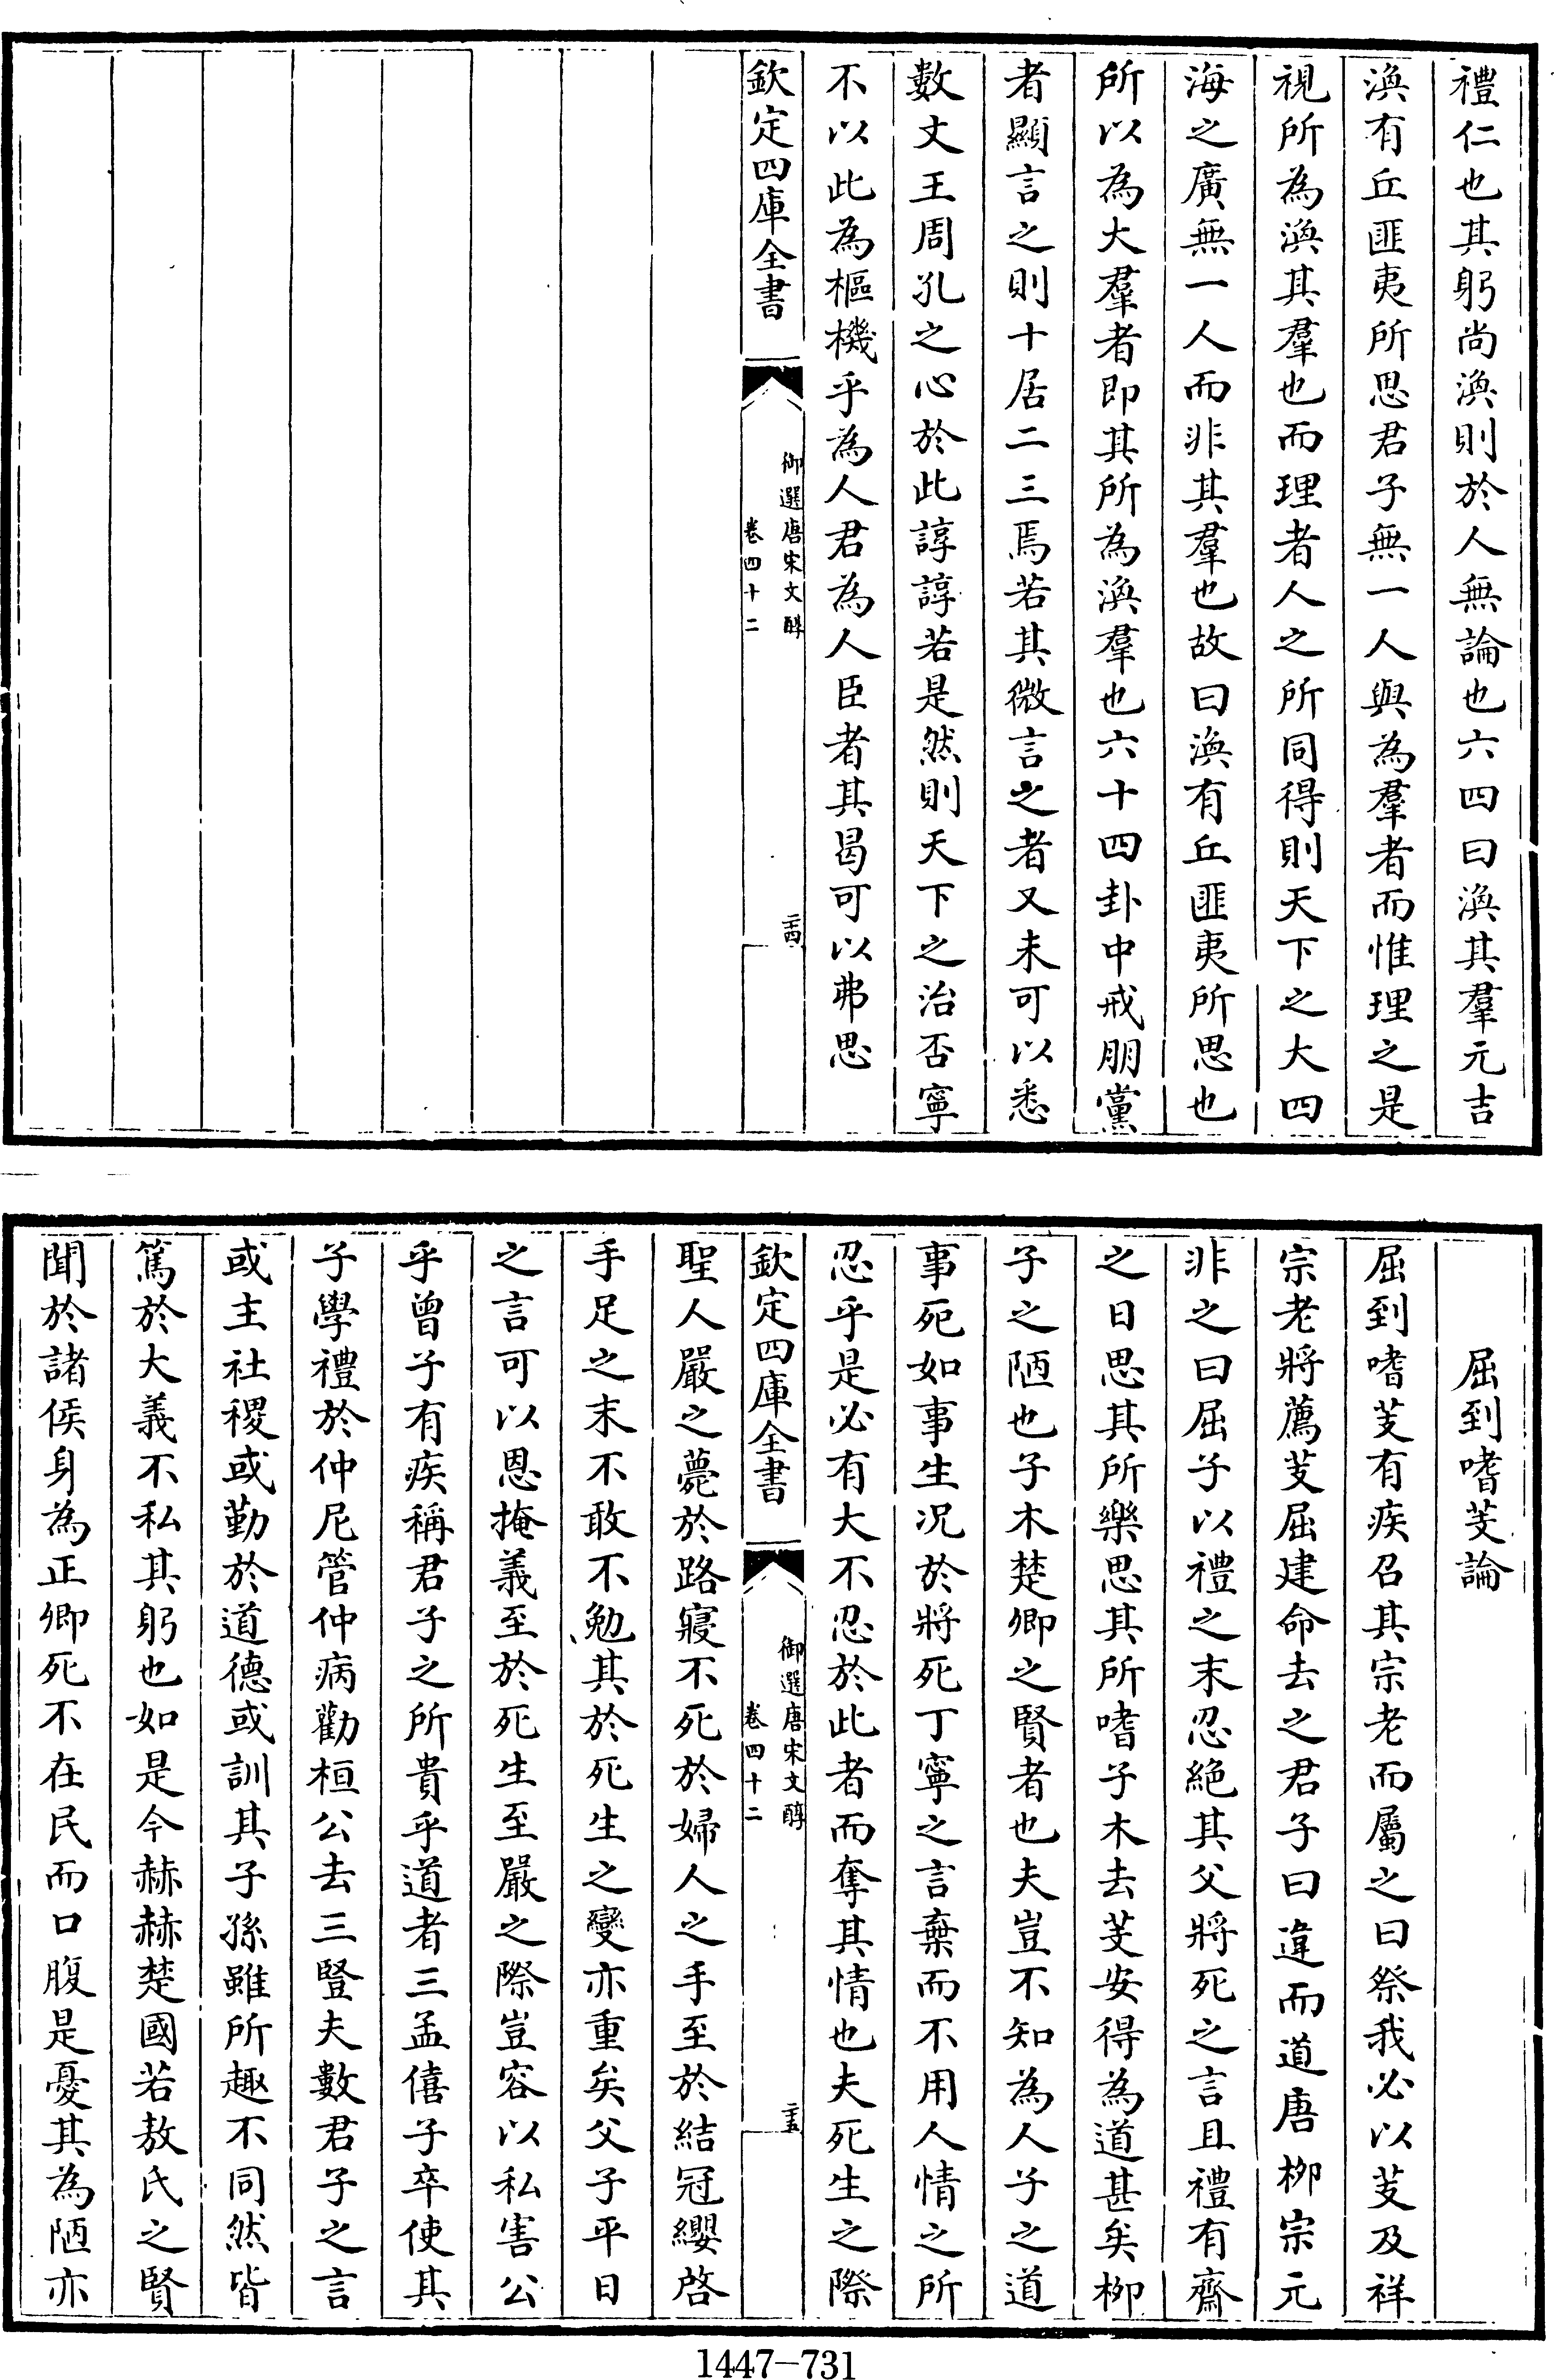 禮仁也其躬尚渙則於人無論也六四曰渙其羣元吉
渙有丘匪夷所思君子無一人與為羣者而惟理之是
視所為渙其羣也而理者人之所同得則天下之大四
海之廣無一人而非其羣也故曰渙有丘匪夷所思也
所以為大羣者即其所為渙羣也六十四卦中戒朋黨
者顯言之則十居二三焉若其微言之者又未可以悉
數文王周孔之心於此諄諄若是然則天下之治否寧
不以此為樞機乎為人君為人臣者其曷可以弗思
欽定四庫全書
御選唐宋文醇
卷四十二
二十四
屈到嗜芰論
屈到嗜芰有疾召其宗老而屬之曰祭我必以芰及祥
宗老將薦芰屈建命去之君子曰違而道唐柳宗元
非之曰屈子以禮之末忍絶其父將死之言且禮有齋
之日思其所樂思其所嗜子木去芰安得為道甚矣柳
子之陋也子木楚卿之賢者也夫豈不知為人子之道
事死如事生况於將死丁寧之言棄而不用人情之所
忍乎是必有大不忍於此者而奪其情也夫死生之際
欽定四庫全書
御選唐宋文醇
卷四十二
二十五
聖人嚴之薨於路寢不死於婦人之手至於結冠纓啓
手足之末不敢不勉其於死生之變亦重矣父子平日
之言可以恩掩義至於死生至嚴之際豈容以私害公
乎曾子有疾稱君子之所貴乎道者三孟僖子卒使其
子學禮於仲尼管仲病勸桓公去三豎夫數君子之言
或主社稷或勤於道德或訓其子孫雖所趣不同然皆
篤於大義不私其躬也如是今赫赫楚國若敖氏之賢
聞於諸侯身為正卿死不在民而口腹是憂其為陋亦
1447-731